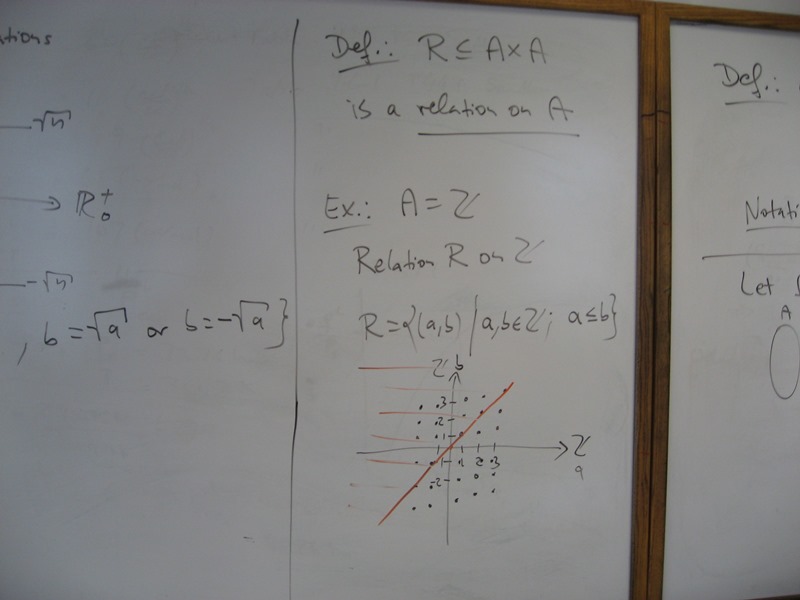 √n
→ ℝ₀⁺
-√n
, b = √a or b = -√a }
Def.: R ⊆ A×A
is a relation on A
Ex.: A = ℤ
Relation R on ℤ
R = {(a,b) | a,b ∈ ℤ; a ≤ b}
ℤ b
3
2
1
-1 1 2 3
-2
ℤ
a
Def.:
Let
A